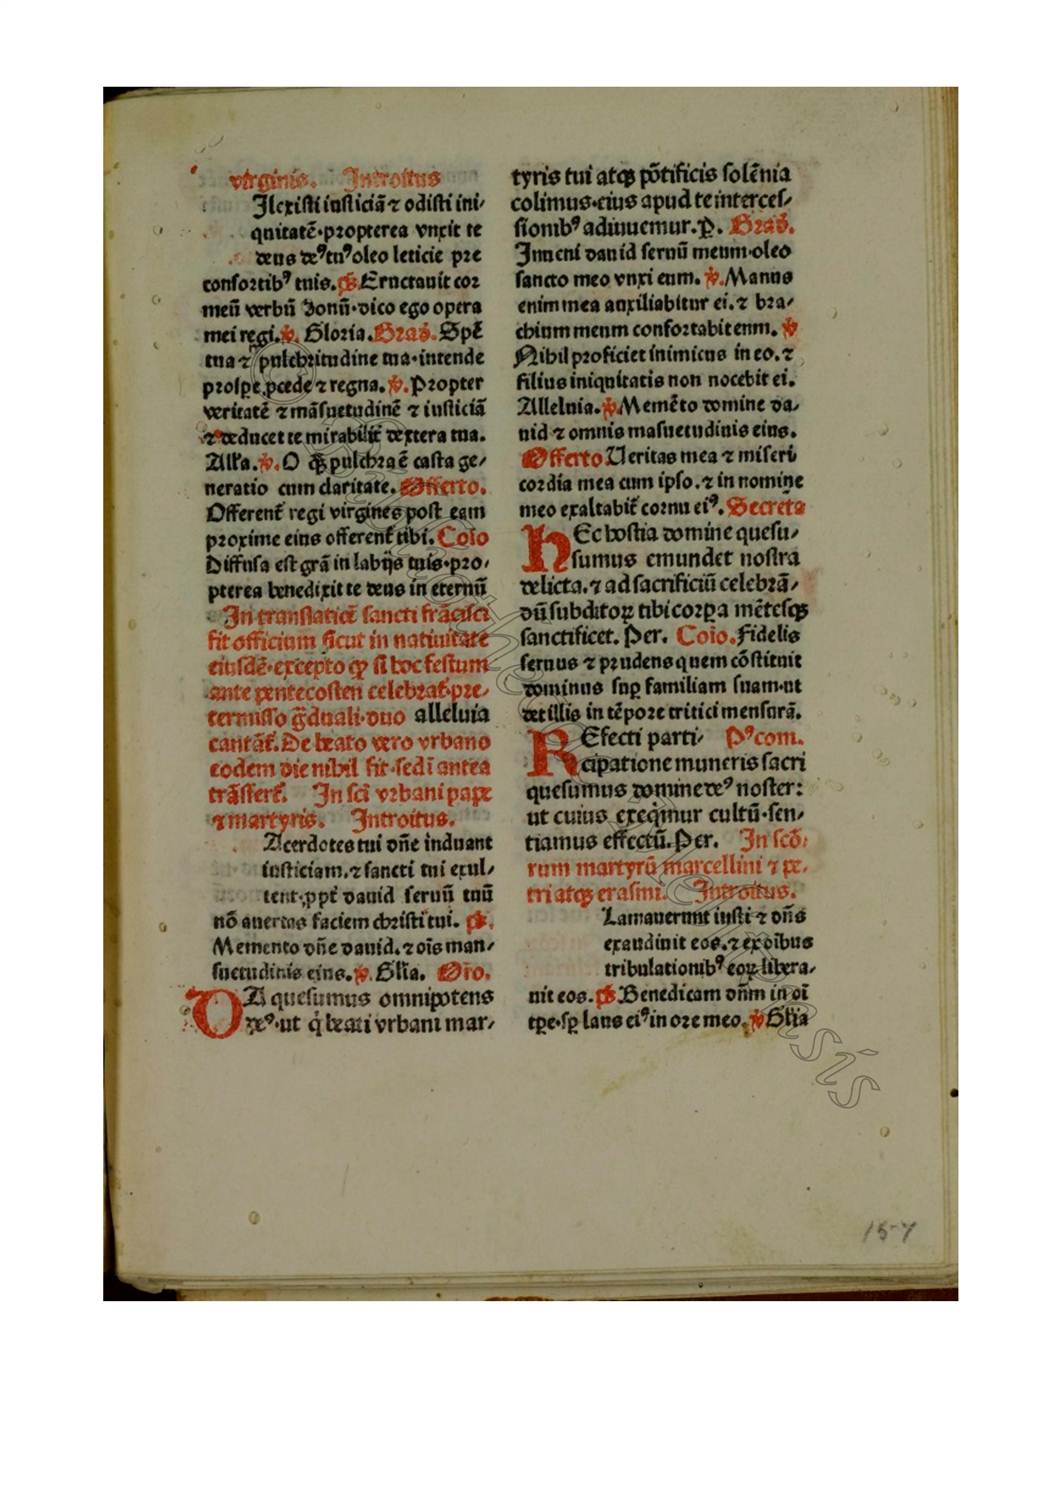 virginis. Introitus
Ilexisti iusticiã ⁊ odisti ini⸗
quitatẽ·propterea vnxit te
deus deꝰ tuꝰ oleo leticie pre
consortibꝰ tuis. p̃s. Eructauit cor
meũ verbũ bonũ·dico ego opera
mei regi. ℣. Gloria. Grad̃. Spẽ
tua ⁊ pulchritudine tua·intende
prospe ꝓcede ⁊ regna. ℣. Propter
veritatẽ ⁊ mãsuetudinẽ ⁊ iusticiã
⁊ deducet te mirabilit̃ dextera tua.
All'a. ℣. O q̃ꝫ pulchra ẽ casta ge⸗
neratio cum claritate. Offerto.
Offerent̃ regi virgines post eam
proxime eius offerent̃ tibi. Coĩo
Diffusa est grã in labijs tuis·pro⸗
pterea benedixit te deus in eternũ
In translatiõe sancti frãcisci
fit officium sicut in natiuitate
eiusdẽ·excepto ꝙ si hoc festum
ante pentecosten celebrat̃·pre⸗
termisso g̃duali·duo alleluia
cantãt̃. De beato vero vrbano
eodem die nihil fit·sed ĩ antea
trãsfert̃. In sc̃i vrbani pape
⁊ martyris. Introitus.
Acerdotes tui dñe induant
iusticiam.⁊ sancti tui exul⸗
tent·ꝓpt̃ dauid seruũ tuũ
nõ auertas faciem christi tui. p̃s.
Memento dñe dauid.⁊ oĩs man⸗
suetudinis eius. ℣. Glĩa. Orõ.
DA quesumus omnipotens
deꝰ·ut q̇ beati vrbani mar⸗
tyris tui atqꝫ põtificis solẽnia
colimus·eius apud te interces⸗
sionibꝰ adiuuemur. P. Grad̃.
Inueni dauid seruũ meum·oleo
sancto meo vnxi eum. ℣. Manus
enim mea auxiliabitur ei.⁊ bra⸗
chium meum confortabit eum. ℣
Nihil proficiet inimicus in eo.⁊
filius iniquitatis non nocebit ei.
Alleluia. ℣. Memẽto domine da⸗
uid ⁊ omnis masuetudinis eius.
Offerto Ueritas mea ⁊ miseri
cordia mea cum ipso.⁊ in nomine
meo exaltabit̃ cornu eiꝰ. Secreta
HEc hostia domine quesu⸗
sumus emundet nostra
delicta.⁊ ad sacrificiũ celebrã⸗
dũ subditoꝝ tibi corꝑa mẽtesqꝫ
sanctificet. Per. Coĩo. Fidelis
seruus ⁊ prudens quem cõstituit
dominus suꝑ familiam suam·ut
det illis in tẽpore tritici mensurã.
REfecti parti⸗ Pꝰcom.
cipatione muneris sacri
quesumus domine deꝰ noster:
ut cuius exeq̇mur cultũ·sen⸗
tiamus effectũ. Per. In sctõ⸗
rum martyrũ marcellini ⁊ pe⸗
tri atqꝫ erasmi. Introitus.
Lamauerunt iusti ⁊ dñs
exaudiuit eos.⁊ ex oĩbus
tribulationibꝰ eoꝝ libera⸗
uit eos. p̃s Benedicam dñm in oĩ
tꝑe·sꝑ laus eiꝰ in ore meo. ℣ Glĩa
157